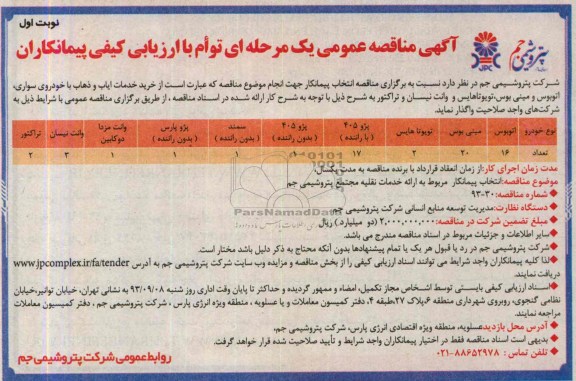 نوبت اول
پتروشیمی جم
JPC
آگهی مناقصه عمومی یک مرحله ای توأم با ارزیابی کیفی پیمانکاران
شرکت پتروشیمی جم در نظر دارد نسبت به برگزاری مناقصه انتخاب پیمانکار جهت انجام موضوع مناقصه که عبارت است از خرید خدمات ایاب و ذهاب با خودروی سواری،
اتوبوس و مینی بوس،تویوتاهایس و وانت نیسان و تراکتور به شرح ذیل با توجه به شرح کار ارائه شده در اسناد مناقصه ، از طریق برگزاری مناقصه عمومی با شرایط ذیل به
شرکت‌های واجد صلاحیت واگذار نماید.
نوع خودرو اتوبوس مینی بوس تویوتا هایس پژو ۴۰۵ (با راننده) پژو ۴۰۵ (بدون راننده) سمند (بدون راننده) پژو پارس (بدون راننده) وانت مزدا دوکابین وانت نیسان تراکتور
تعداد ۱۶ ۲۰ ۲ ۱۷ ۱ ۱ ۱ ۳ ۲
مدت زمان اجرای کار:از زمان انعقاد قرارداد با برنده مناقصه به مدت یکسال.
موضوع مناقصه:انتخاب پیمانکار مربوط به ارائه خدمات نقلیه مجتمع پتروشیمی جم
شماره مناقصه: ۳۰-۹۳
دستگاه نظارت:مدیریت توسعه منابع انسانی شرکت پتروشیمی جم
مبلغ تضمین شرکت در مناقصه: ۲,۰۰۰,۰۰۰,۰۰۰ (دو میلیارد) ریال
سایر اطلاعات و جزئیات مربوط در اسناد مناقصه مندرج می باشد.
شرکت پتروشیمی جم در رد یا قبول هر یک یا تمام پیشنهادها بدون آنکه محتاج به ذکر دلیل باشد مختار است.
لذا کلیه پیمانکاران واجد شرایط می توانند اسناد ارزیابی کیفی را از بخش مناقصه و مزایده وب سایت شرکت پتروشیمی جم به آدرس www.jpcomplex.ir/fa/tender
دریافت نمایند.
اسناد ارزیابی کیفی بایستی توسط اشخاص مجاز تکمیل، امضاء و ممهور گردیده و حداکثر تا پایان وقت اداری روز شنبه ۹۳/۰۹/۰۸ به نشانی تهران، خیابان توانیر،خیابان
نظامی گنجوی، روبروی شهرداری منطقه ۶،پلاک ۲۷،طبقه ۴، دفتر کمیسیون معاملات و یا عسلویه ، منطقه ویژه انرژی پارس ، شرکت پتروشیمی جم ، دفتر کمیسیون معاملات
مراجعه نمایند.
آدرس محل بازدید:عسلویه، منطقه ویژه اقتصادی انرژی پارس، شرکت پتروشیمی جم.
بدیهی است اسناد مناقصه فقط در اختیار پیمانکاران واجد شرایط و تأیید صلاحیت شده قرار خواهد گرفت.
تلفن تماس : ۸۸۶۵۲۹۷۸-۰۲۱
روابط عمومی شرکت پتروشیمی جم
ParsNamadData